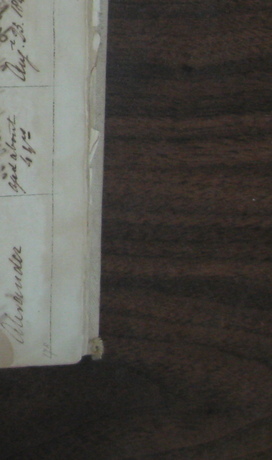 Alexander
aged about
4 yrs
Augt 23. 18